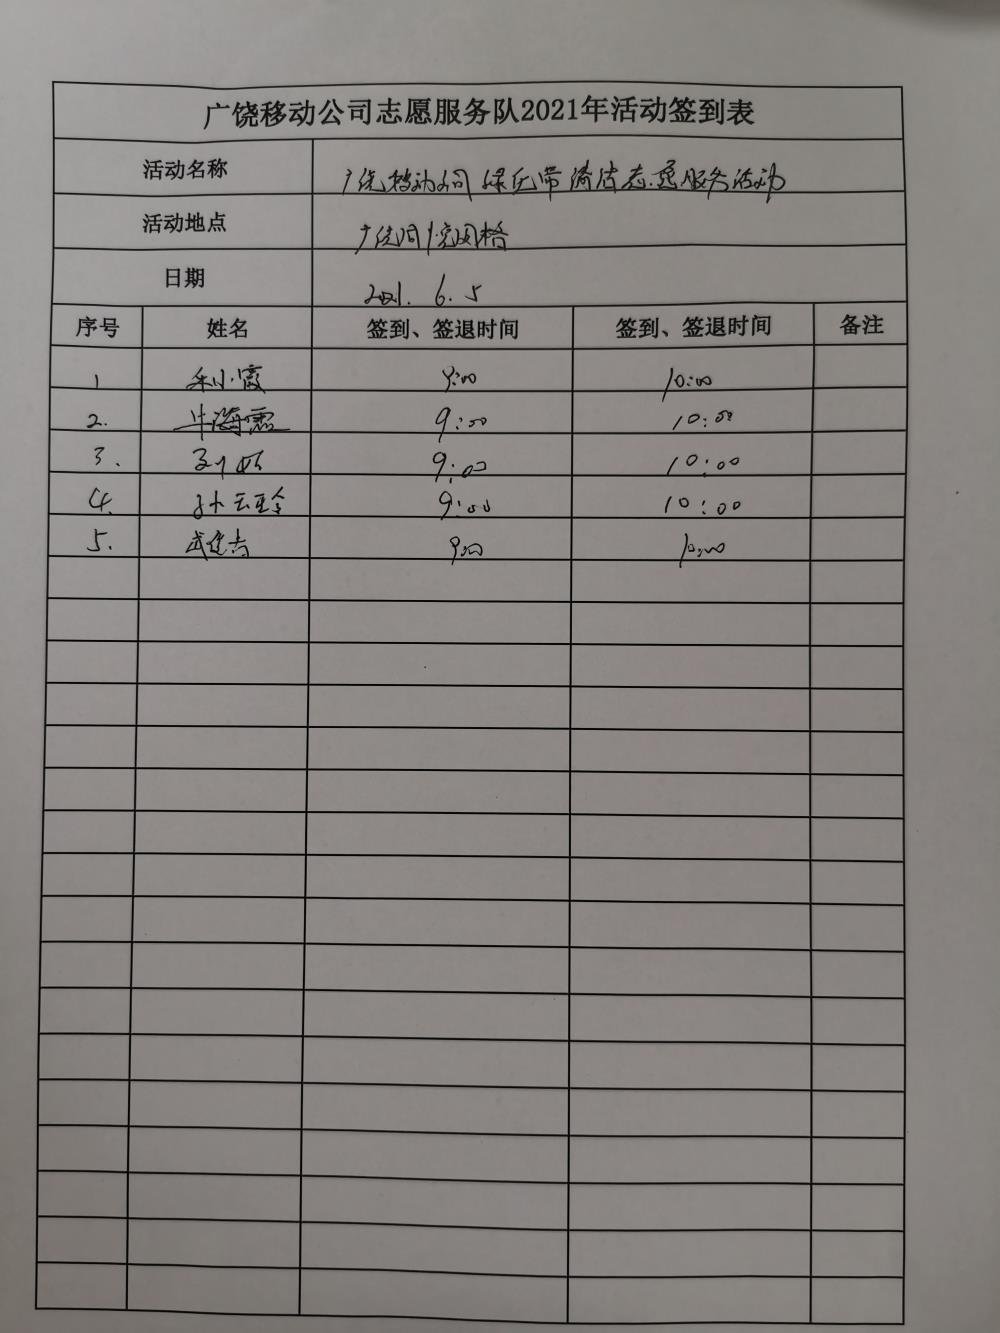 广饶移动公司志愿服务队2021年活动签到表
活动名称 广饶移动公司绿化带清洁志愿服务活动
活动地点 广饶
日期 2021.6.5
序号 姓名 签到、签退时间 签到、签退时间 备注
1 9:00 10:00
2. 牛海霞 9:00 10:00
3. 9:00 10:00
4. 孙玉玲 9:00 10:00
5. 9:00 10:00